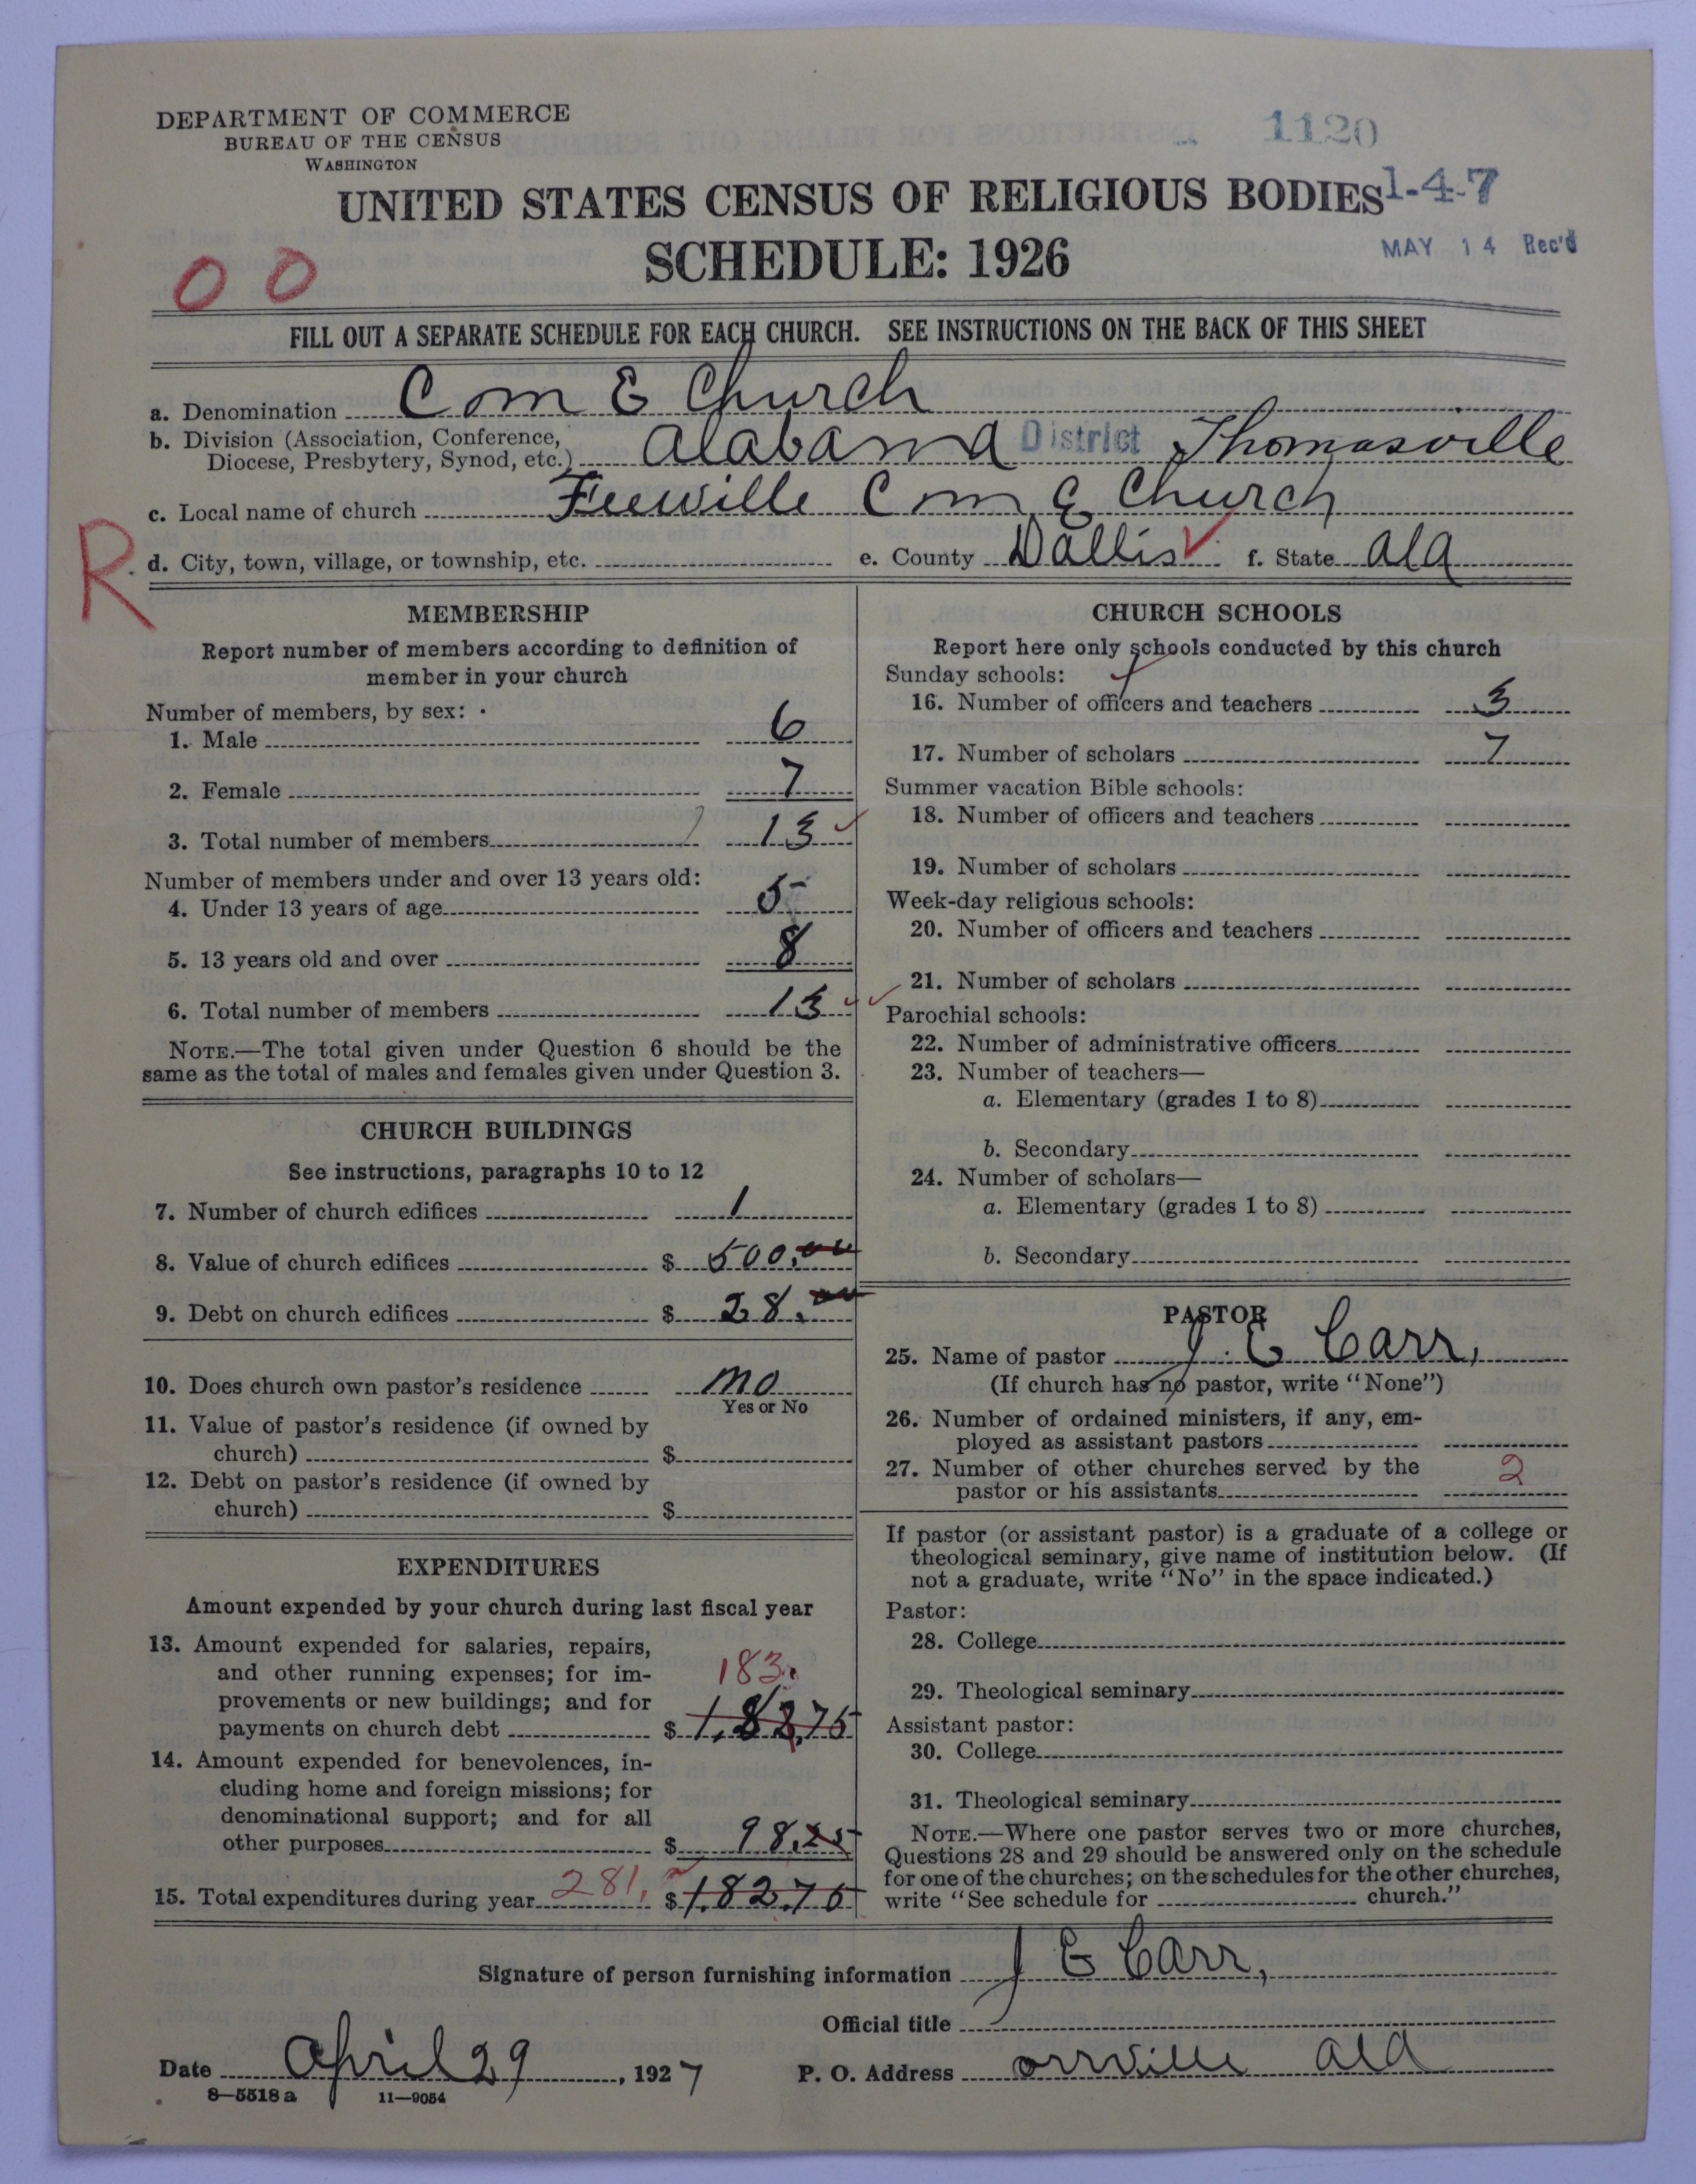 DEPARTMENT OF COMMERCE
BUREAU OF THE CENSUS
WASHINGTON
1120
UNITED STATES CENSUS OF RELIGIOUS BODIES
1-4-7
SCHEDULE: 1926
MAY 14 Rec'd
00
FILL OUT A SEPARATE SCHEDULE FOR EACH CHURCH. SEE INSTRUCTIONS ON THE BACK OF THIS SHEET
a. Denomination C M E Church
b. Division (Association, Conference,
Diocese, Presbytery, Synod, etc.) Alabama District Thomasville
c. Local name of church C M E Church
R
d. City, town, village, or township, etc. e. County Dallis f. State Ala
MEMBERSHIP
Report number of members according to definition of
member in your church
Number of members, by sex:
1. Male 6
2. Female 7
3. Total number of members 13
Number of members under and over 13 years old:
4. Under 13 years of age 5
5. 13 years old and over 8
6. Total number of members 13
NOTE.—The total given under Question 6 should be the
same as the total of males and females given under Question 3.
CHURCH BUILDINGS
See instructions, paragraphs 10 to 12
7. Number of church edifices 1
8. Value of church edifices $ 500.00
9. Debt on church edifices $ 28.00
10. Does church own pastor's residence no
Yes or No
11. Value of pastor's residence (if owned by
church) $
12. Debt on pastor's residence (if owned by
church) $
EXPENDITURES
Amount expended by your church during last fiscal year
13. Amount expended for salaries, repairs,
and other running expenses; for im-
provements or new buildings; and for
payments on church debt $ 183. 1,82,75
14. Amount expended for benevolences, in-
cluding home and foreign missions; for
denominational support; and for all
other purposes $ 98.25
15. Total expenditures during year 281. $ 182.75
CHURCH SCHOOLS
Report here only schools conducted by this church
Sunday schools:
16. Number of officers and teachers 3
17. Number of scholars 7
Summer vacation Bible schools:
18. Number of officers and teachers
19. Number of scholars
Week-day religious schools:
20. Number of officers and teachers
21. Number of scholars
Parochial schools:
22. Number of administrative officers
23. Number of teachers—
a. Elementary (grades 1 to 8)
b. Secondary
24. Number of scholars—
a. Elementary (grades 1 to 8)
b. Secondary
PASTOR
25. Name of pastor J. E Carr,
(If church has no pastor, write "None")
26. Number of ordained ministers, if any, em-
ployed as assistant pastors
27. Number of other churches served by the
pastor or his assistants 2
If pastor (or assistant pastor) is a graduate of a college or
theological seminary, give name of institution below. (If
not a graduate, write "No" in the space indicated.)
Pastor:
28. College
29. Theological seminary
Assistant pastor:
30. College
31. Theological seminary
NOTE.—Where one pastor serves two or more churches,
Questions 28 and 29 should be answered only on the schedule
for one of the churches; on the schedules for the other churches,
write "See schedule for church."
Signature of person furnishing information J E Carr,
Official title
Date April 29, 1927 P. O. Address orrville Ala
8—5518 a 11—9054